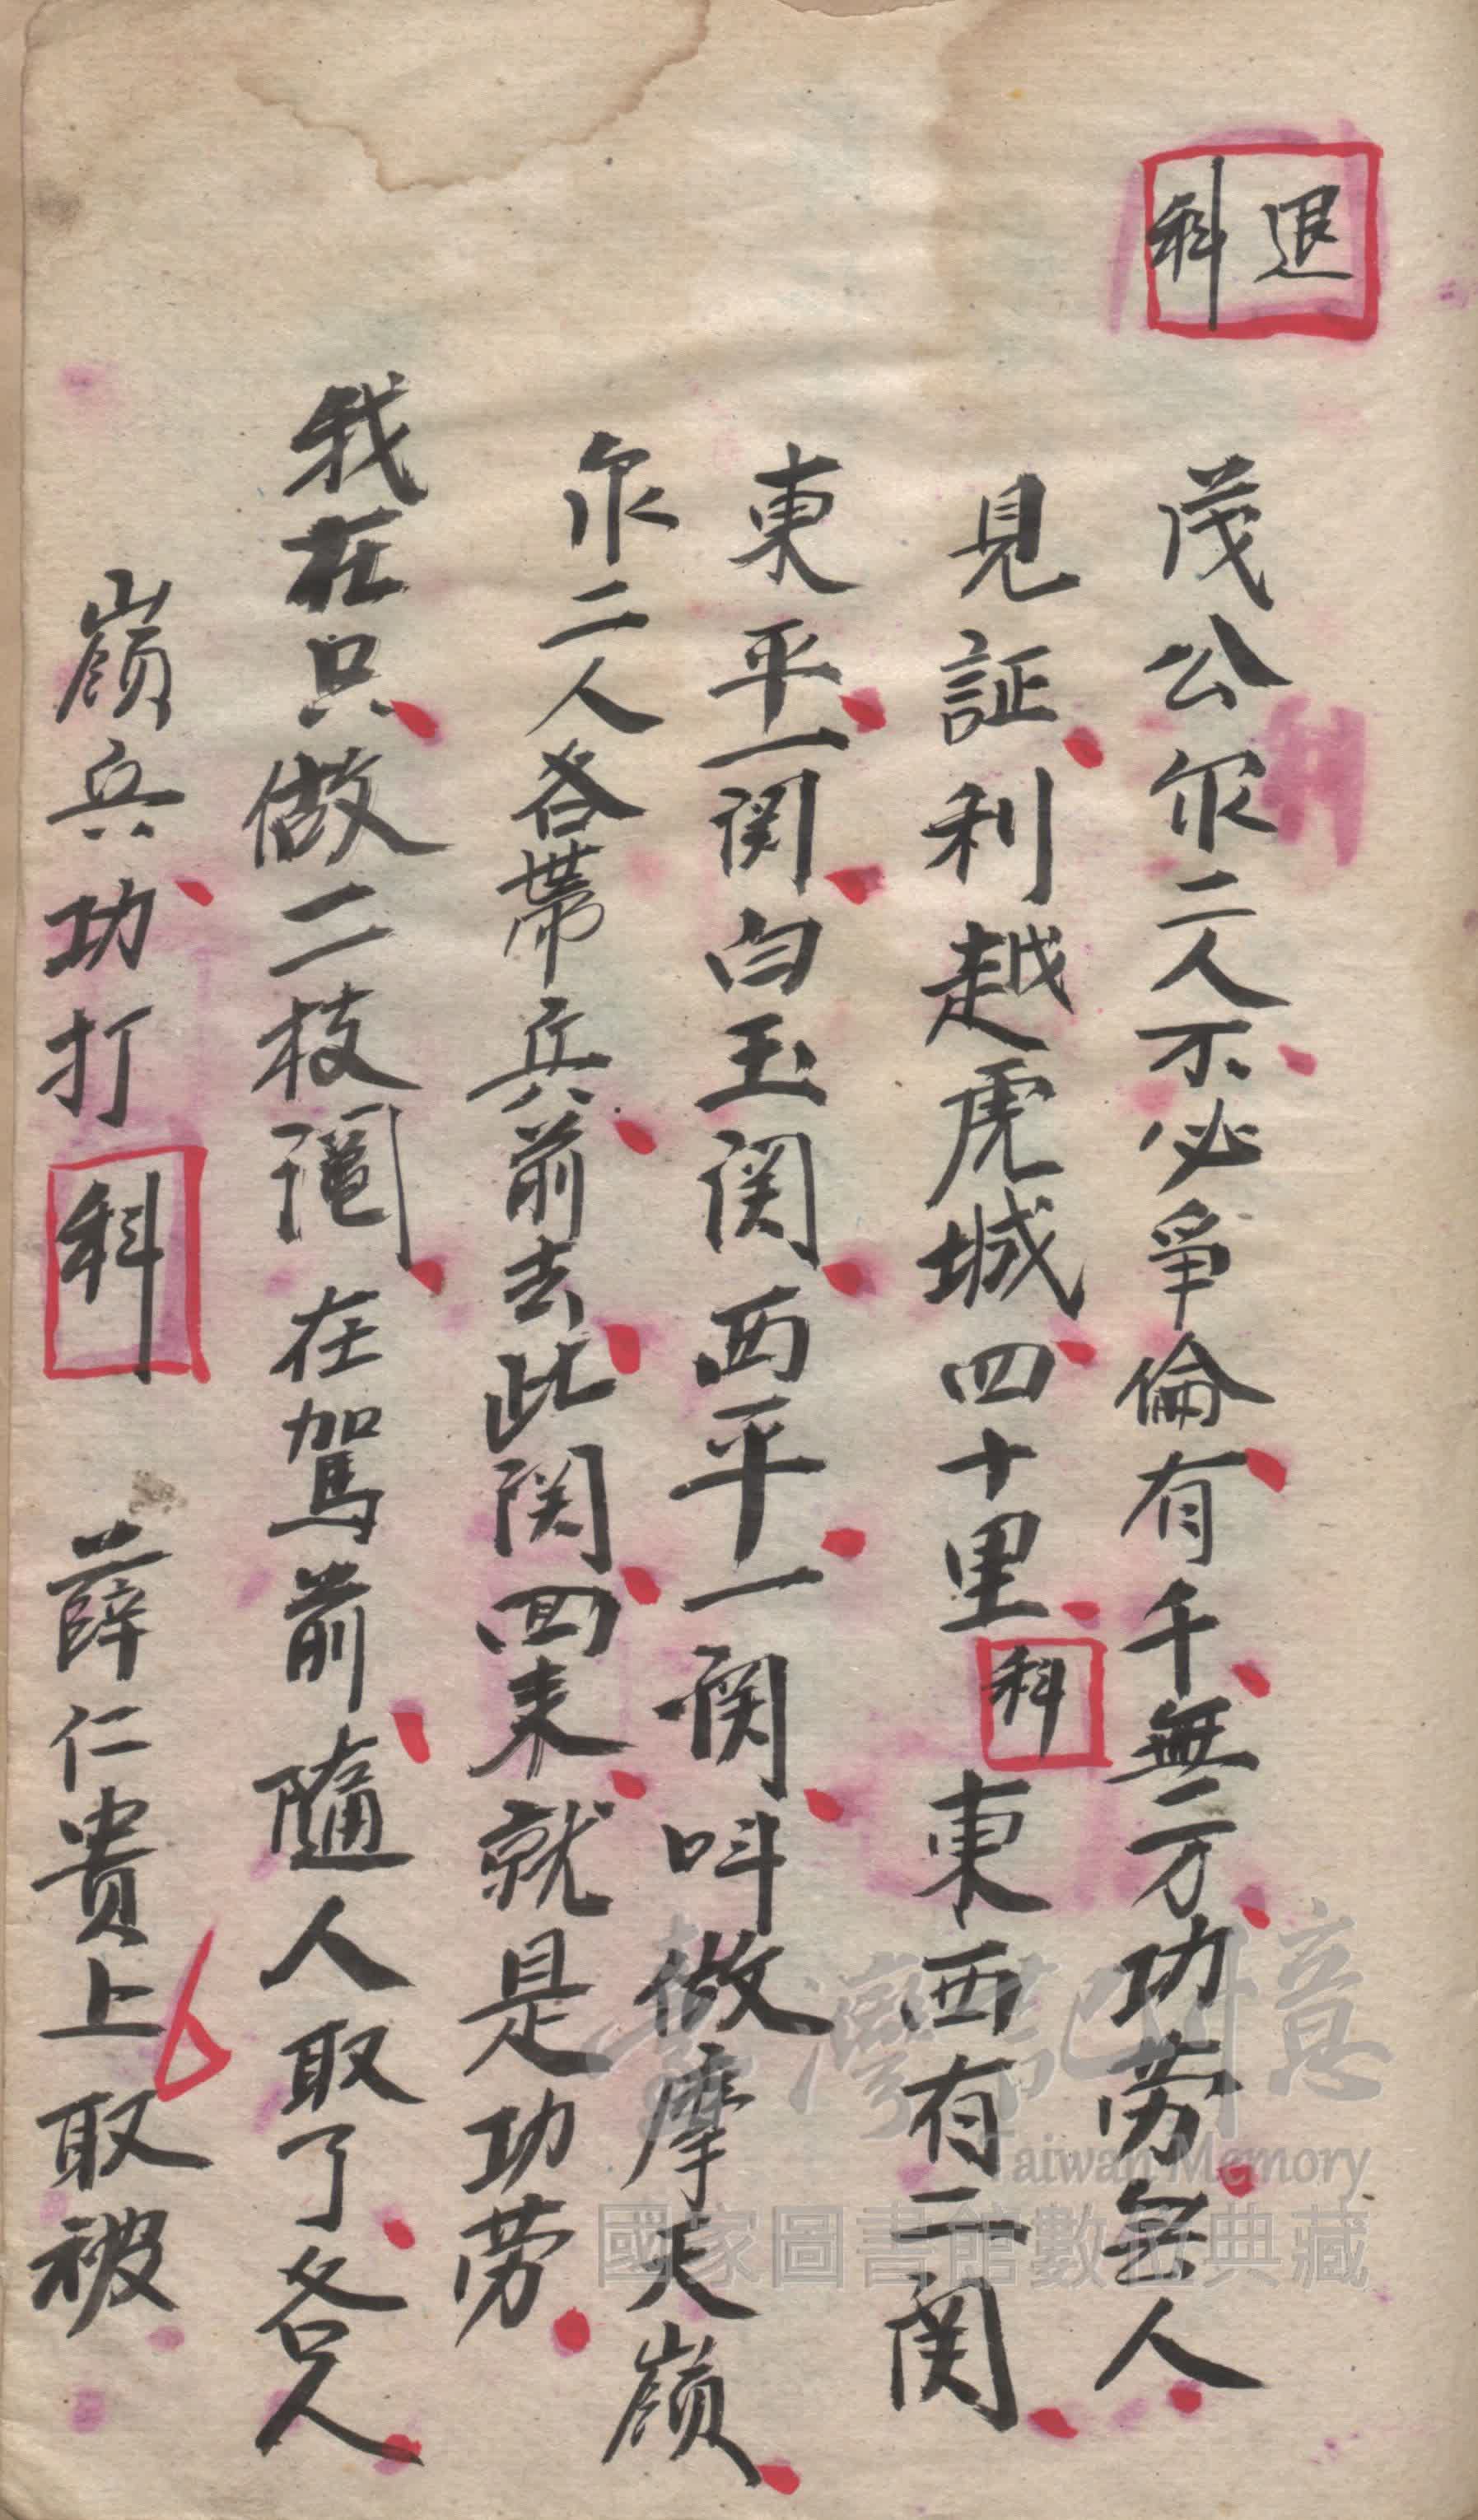 退科
茂公尔二人不必爭倫有千無万功劳無人
見証利越虎城四十里科東西有二関
東平一関白玉関西平一関叫做摩天嶺
尔二人各帶兵前去此関回来就是功劳
我在只做二枝在駕前隨人取了各人
嶺兵功打科薛仁貴上取被
臺灣記憶
Taiwan Memory
國家圖書館數位典藏